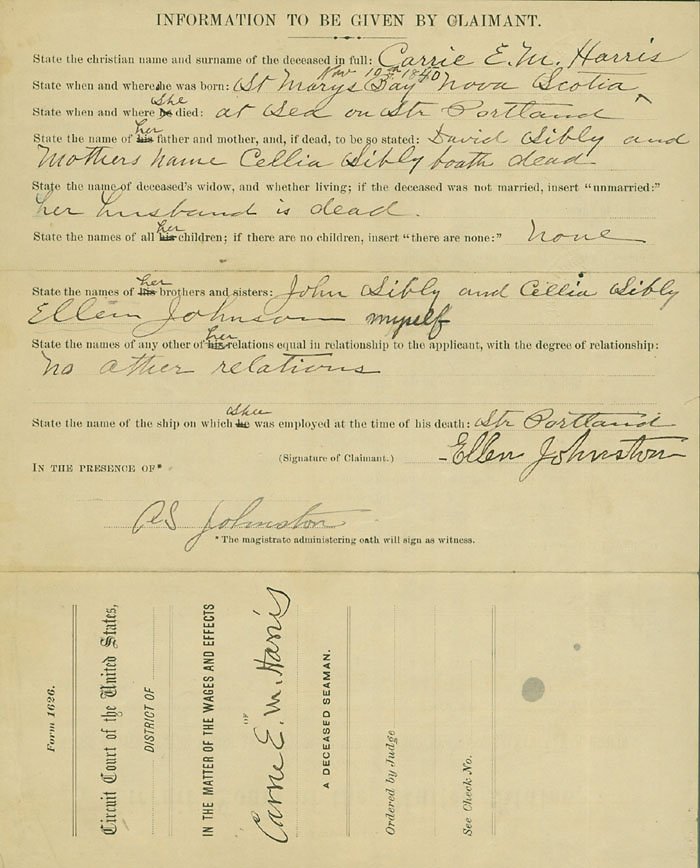 INFORMATION TO BE GIVEN BY CLAIMANT.
State the christian name and surname of the deceased in full: Carrie E. M. Harris
Nov 19th 1840
State when and where she was born: St Marys Bay Nova Scotia
She
State when and where he died: at Sea on Str Portland
her
State the name of his father and mother, and, if dead, to be so stated: David Sibly and
Mothers Name Cellia Sibly boath dead
State the name of deceased's widow, and whether living; if the deceased was not married, insert "unmarried:"
her husband is dead.
her
State the names of all his children; if there are no children, insert "there are none:" none
her
State the names of his brothers and sisters: John Sibly and Cellia Sibly
Ellen Johnson myself
her
State the names of any other of his relations equal in relationship to the applicant, with the degree of relationship:
No other relations
shee
State the name of the ship on which he was employed at the time of his death: Str Portland
(Signature of Claimant.) - Ellen Johnston
IN THE PRESENCE OF*
Johnston
* The magistrate administering oath will sign as witness.
Form 1626.
Circuit Court of the United States,
DISTRICT OF
IN THE MATTER OF THE WAGES AND EFFECTS
OF
Carrie E. M. Harris
A DECEASED SEAMAN.
Ordered by Judge
See Check No.